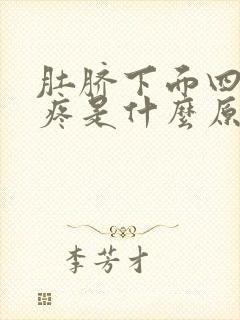 肚脐下而四
疼是什麼原
李芳才